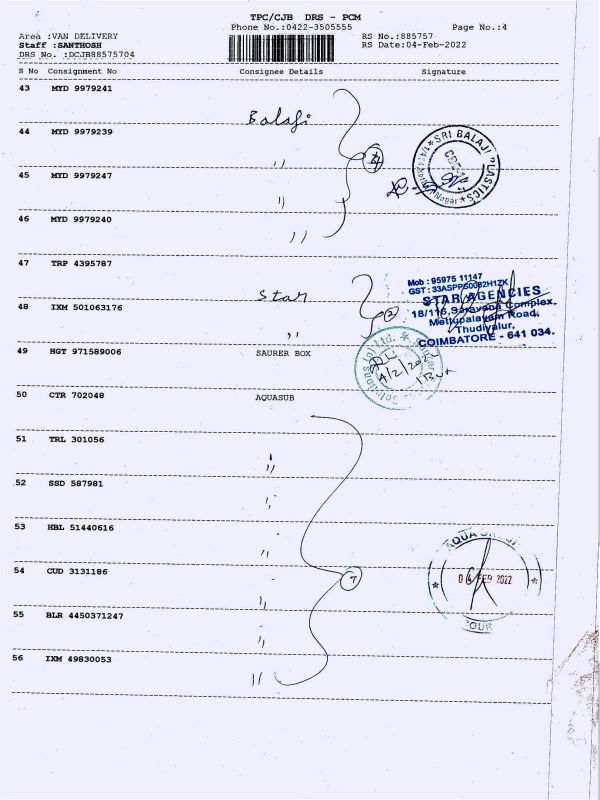 TPC/CJB DRS - PCM
Phone No.:0422-3505555 Page No.:4
Area :VAN DELIVERY RS No.:885757
Staff :SANTHOSH RS Date:04-Feb-2022
DRS No. :DCJB88575704
S No Consignment No Consignee Details Signature
43 MYD 9979241
Balaji
44 MYD 9979239
,, 4
SRI BALAJI PLASTICS
45 MYD 9979247
,,
46 MYD 9979240
,,
47 TRP 4395787
Star
Mob : 95975 11147
GST : 33ASPPS0082H1ZK
STAR AGENCIES
48 IXM 501063176
,, 2
18/116, Saravana Complex,
Mettupalayam Road,
Thudiyalur,
COIMBATORE - 641 034.
49 HGT 971589006 SAURER BOX
4/2/2022
50 CTR 702048 AQUASUB
51 TRL 301056
,,
52 SSD 587981
,,
53 HBL 51440616
,,
AQUA
54 CUD 3131186 7
04 FEB 2022
,,
55 BLR 4450371247
,,
56 IXM 49830053
,,